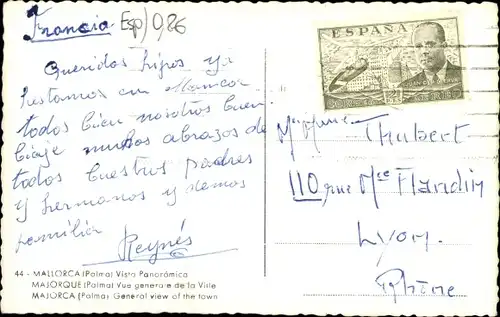 Francia Esp) 0,86
Queridos hijos ya
hestamos en Mancor
todos bien nosotros buen
biaje muchos abrazos de
todos buestros padres
y hermanos y demos
familia
Reynés
44 - MALLORCA (Palma) Vista Panorámica
MAJORQUE (Palma) Vue generale de la Ville
MAJORCA (Palma) General view of the town
ESPAÑA
Thubert
110 rue Mce Flandin
Lyon.
Rhône